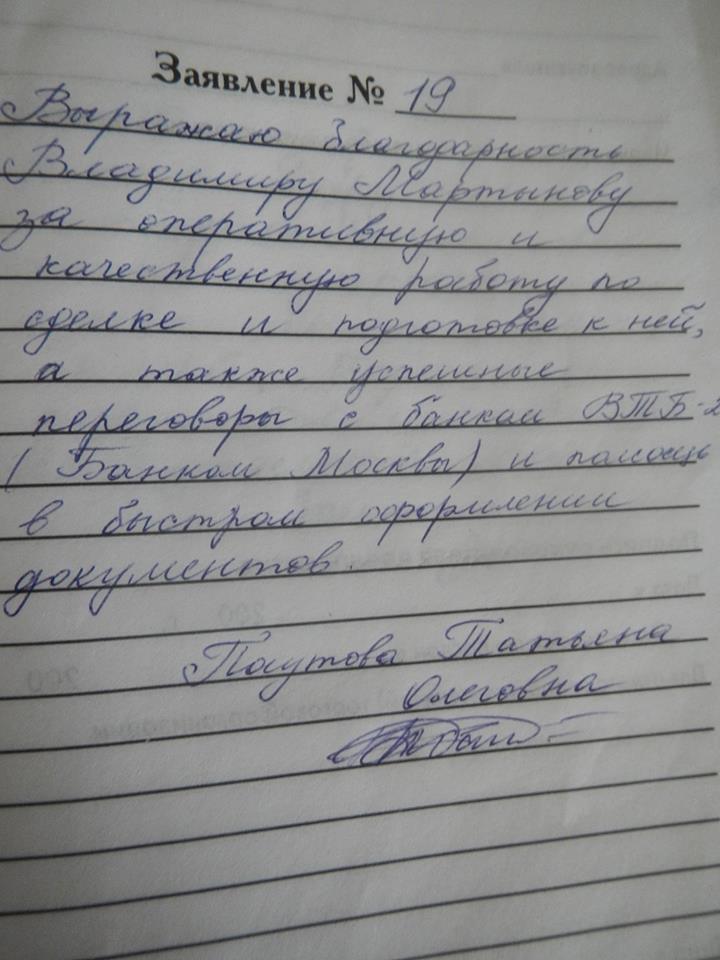 Заявление № 19
Выражаю благодарность
Владимиру Мартынову
за оперативную и
качественную работу по
сделке и подготовке к ней,
а также успешные
переговоры с банком ВТБ-2
(Банком Москвы) и помощь
в быстром оформлении
документов.
Паутова Татьяна
Олеговна